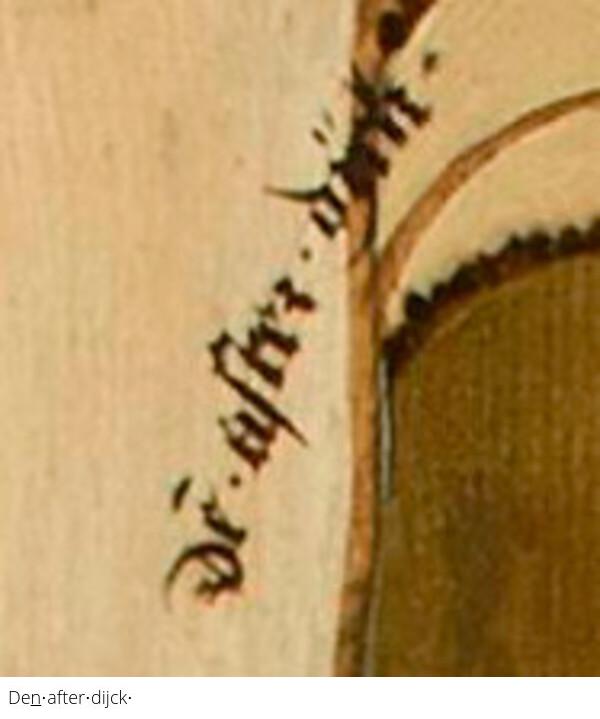 Dē·after·dijck·
Den·after·dijck·